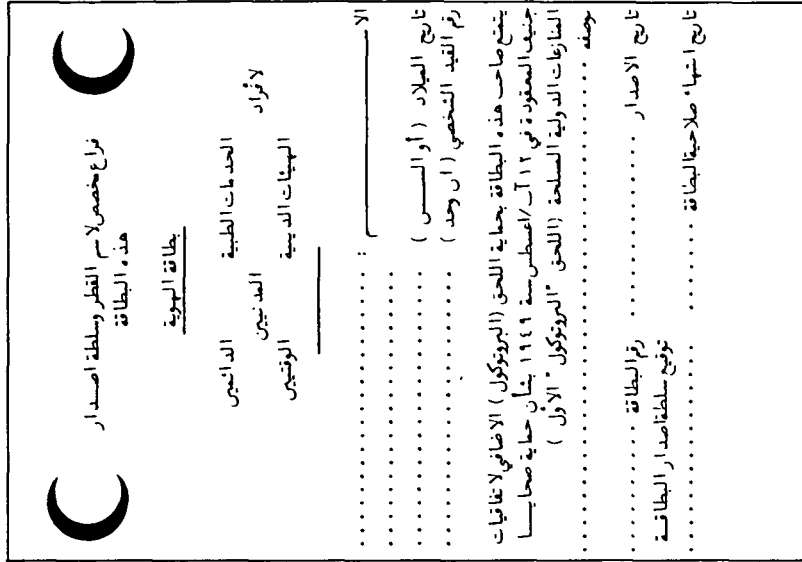 فراغ مخصص لاسم القطر وسلطة اصـدار
هذه البطاقة
بطاقة الهوية
لأفراد
الخدمات الطبية الدائمين
المدنيين
الهيئات الدينية الوقتيين
الاســـــــــــم : ..............
تاريخ الميلاد ( أو الســـن ) ..............
رقم القيد الشخصي ( ان وجد ) ..............
يتمتع صاحب هذه البطاقة بحماية اللحق ( البروتوكول ) الاضافي لاتفاقيات
جنيف المعقودة في ١٢ آب/اغسطس سنة ١٩٤٩ بشأن حماية ضحايــا
المنازعات الدولية المسلحة ( اللحق " البروتوكول " الأول )
بوصفه ..............
تاريخ الاصدار .............. رقم البطاقة ..............
توقيع سلطة اصدار البطاقــة
تاريخ انتهاء صلاحية البطاقة ..............